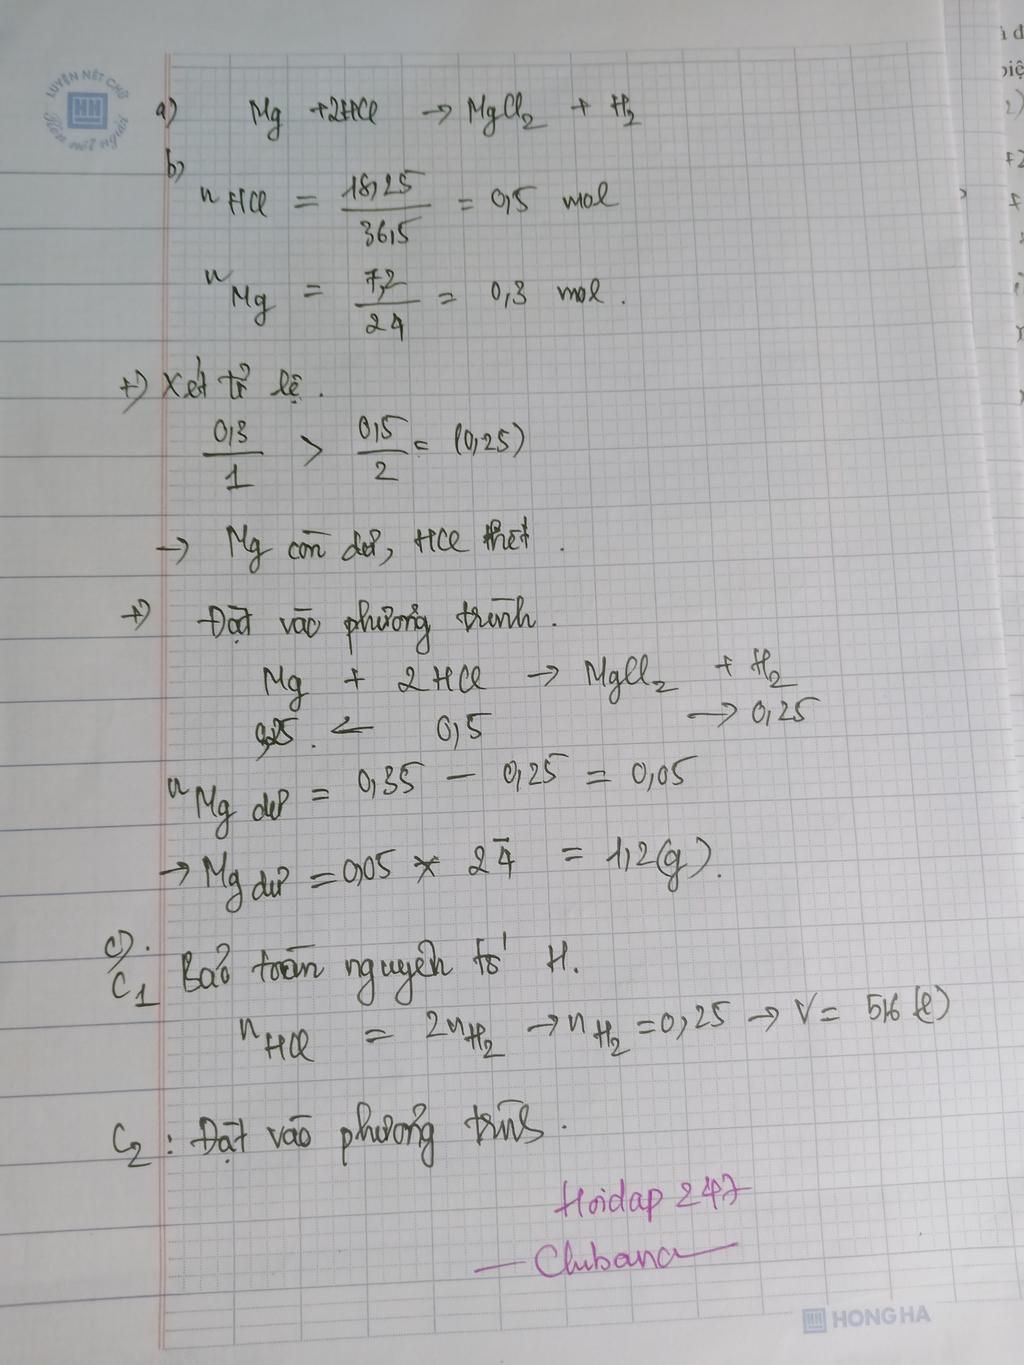 LUYỆN NÉT CHỮ
HH
Rèn nết người
a) Mg + 2HCl → MgCl₂ + H₂
b)
n HCl = 18,25 / 36,5 = 0,5 mol
n Mg = 7,2 / 24 = 0,3 mol.
+) Xét tỉ lệ.
0,3 / 1 > 0,5 / 2 = (0,25)
→ Mg còn dư, HCl hết.
+) Đặt vào phương trình.
Mg + 2HCl → MgCl₂ + H₂
0,25. ← 0,5 → 0,25
n Mg dư = 0,35 – 0,25 = 0,05
→ Mg dư = 0,05 * 24 = 1,2 (g).
c).
C₁ Bảo toàn nguyên tố H.
n HCl = 2n H₂ → n H₂ = 0,25 → V = 5,6 (l)
C₂ : Đặt vào phương trình.
Hoidap 247
— Chibana —
HH HONG HA